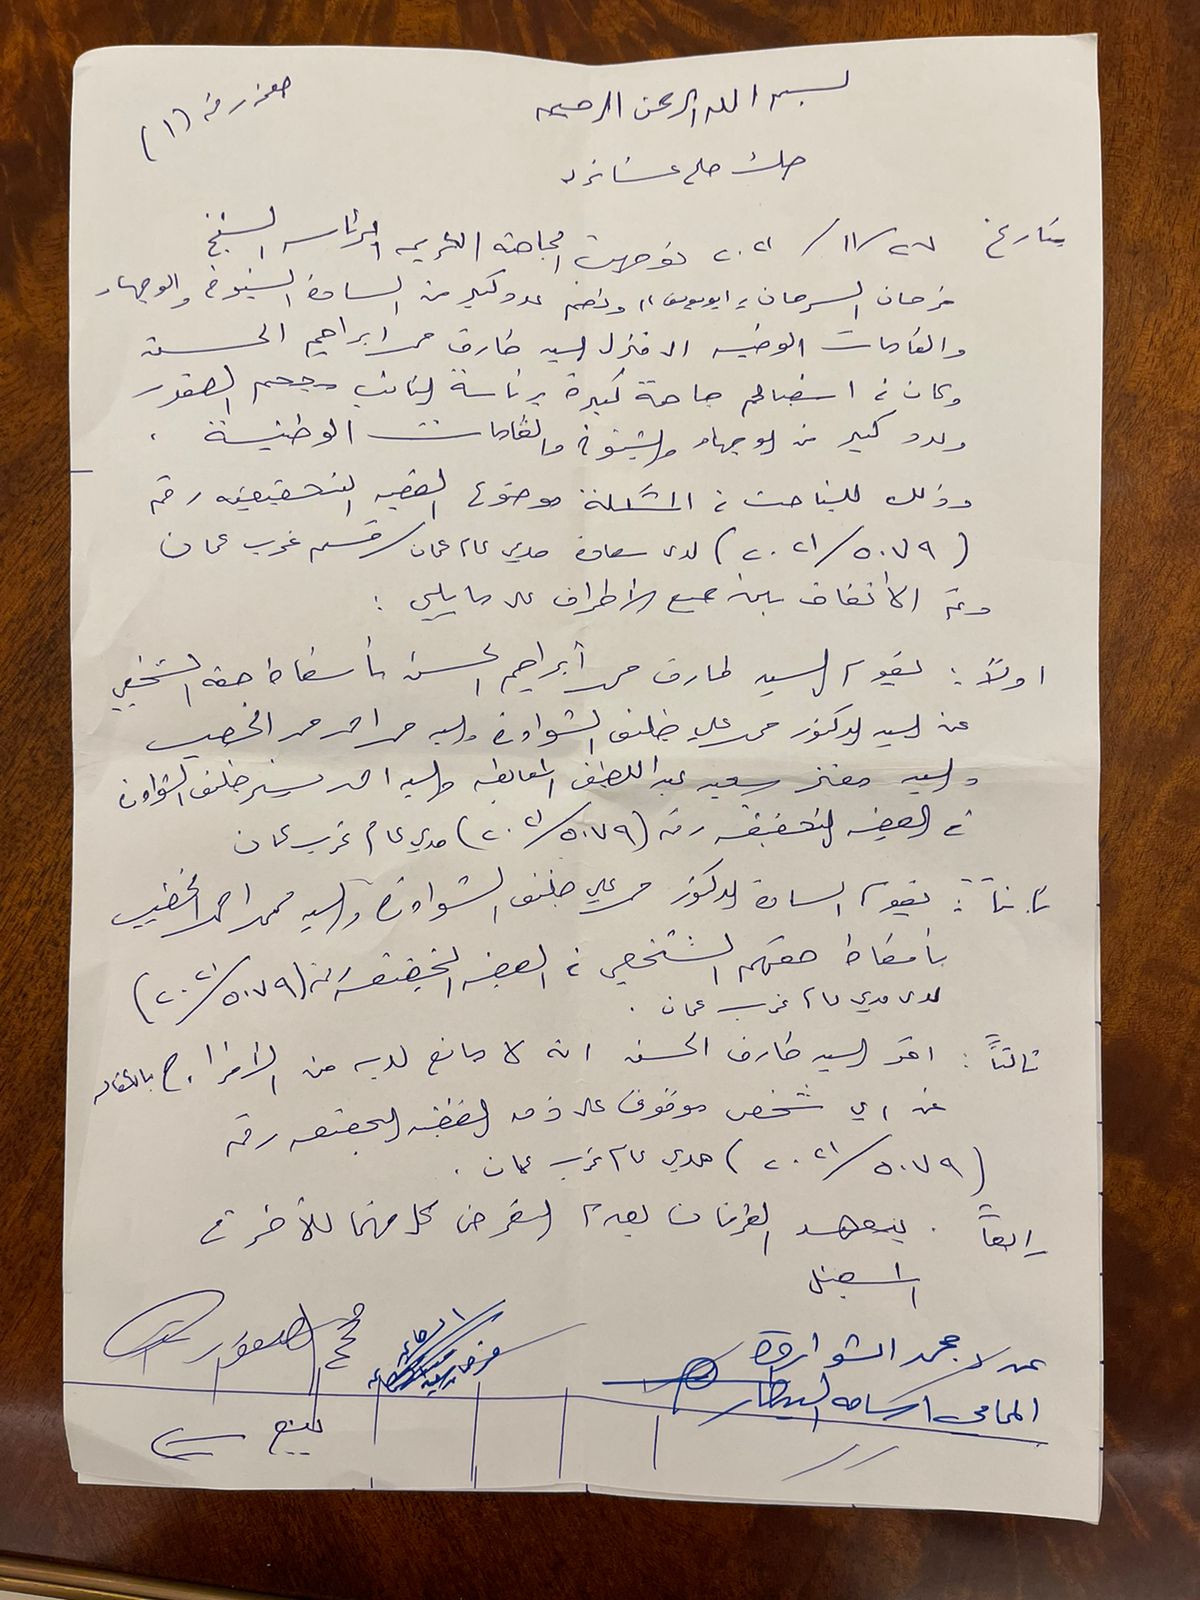 صفحة رقم (١)
بسم الله الرحمن الرحيم
صك صلح عشائري
بتاريخ ٢٧/١١/٢٠٢١ توجهت الجاهة الكريمة برئاسة الشيخ
فرحان السرحان وضم عدد كبير من السادة الشيوخ والوجهاء
والقامات الوطنية الى منزل السيد طارق محمد ابراهيم الحسن
وكان في استقبالهم جاهة كبيرة برئاسة النائب حجحم الصقور
وعدد كبير من الوجهاء والشيوخ والقامات الوطنية .
وذلك للتباحث في المشكلة موضوع القضية التحقيقية رقم
(٥٠٧٩/٢٠٢١) لدى سعادة مدعي عام عمان/قسم غرب عمان
وتم الاتفاق بين جميع الأطراف على ما يلي :
اولاً : يقوم السيد طارق محمد أبراهيم الحسن بأسقاط حقه الشخصي
عن السيد الدكتور محمد علي خليف الشواورة والسيد محمد احمد محمد الخصيب
والسيد معتز سعيد عبداللطيف والسيد احمد خليف الشواورة
في القضية التحقيقية رقم (٥٠٧٩/٢٠٢١) مدعي عام غرب عمان
ثانياً : يقوم السادة الدكتور محمد علي خليف الشواورة والسيد محمد احمد الخصيب
بأسقاط حقهم الشخصي في القضية التحقيقية رقم (٥٠٧٩/٢٠٢١)
لدى مدعي عام غرب عمان .
ثالثاً : اقر السيد طارق الحسن انه لا مانع لديه من الافراج بالكفالة
عن اي شخص موقوف على ذمة القضية التحقيقية رقم
(٥٠٧٩/٢٠٢١) مدعي عام غرب عمان .
رابعاً . يتعهد الفريقان بعدم التعرض كل منهما للآخر في
المستقبل
عن د. محمد الشواورة
المحامي اسامه البيطار
الصقور
يتبع